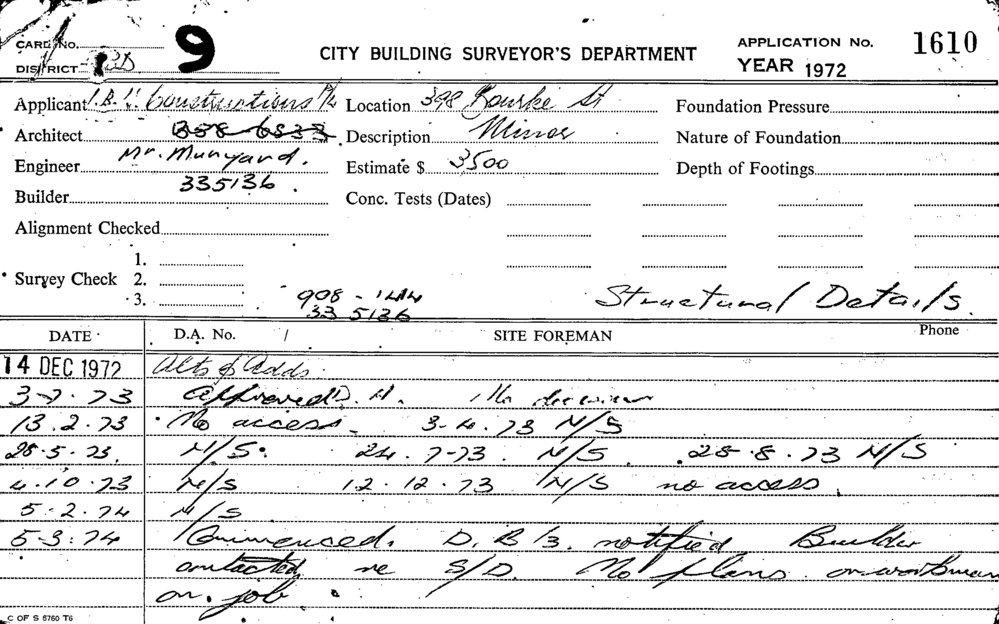 CARD No.
9
CITY BUILDING SURVEYOR'S DEPARTMENT
APPLICATION No. 1610
DISTRICT 3D
YEAR 1972
Applicant Constructions P/L Location 398 Bourke St Foundation Pressure
Architect Description Minor Nature of Foundation
Engineer Mr. Munyard. Estimate $ 3500 Depth of Footings
Builder 335136. Conc. Tests (Dates)
Alignment Checked
1.
Survey Check 2.
3.
908-144 Structural Details.
33 5136
DATE D.A. No. / SITE FOREMAN Phone
14 DEC 1972 Alts & Adds.
73 Approved D.H.
13.2.73 No access. 3-4.73 N/S
28.5.73. N/S. 24.7-73. N/S. 28-8.73 N/S
4.10.73 N/S 12.12.73 N/S no access.
5.2.74 N/S
5-3.74 Commenced. notified Builder
contacted re S/D. No plans or workman
on job
C OF S 5760 T6